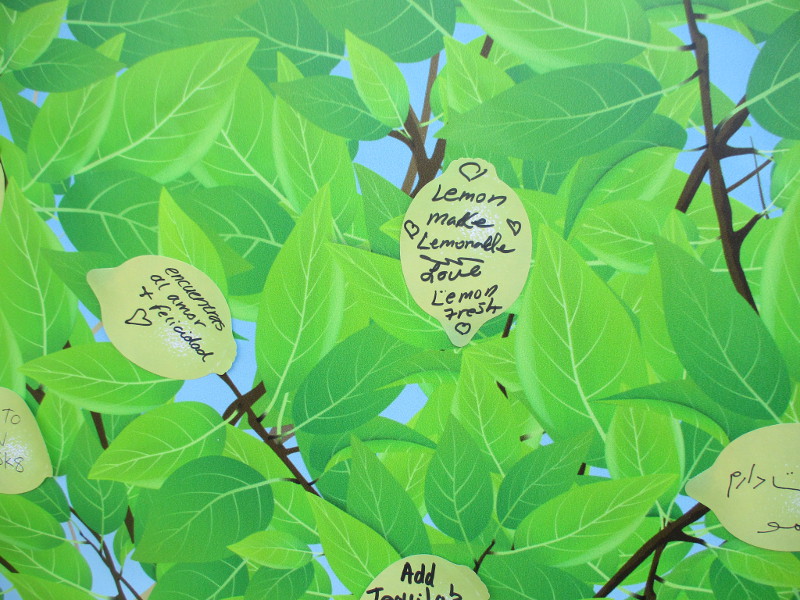 Lemon
make
Lemonade
Love
Lemon
Fresh
encuentras
al amor
+ felicidad
TO
Add
Tequila?
دارم